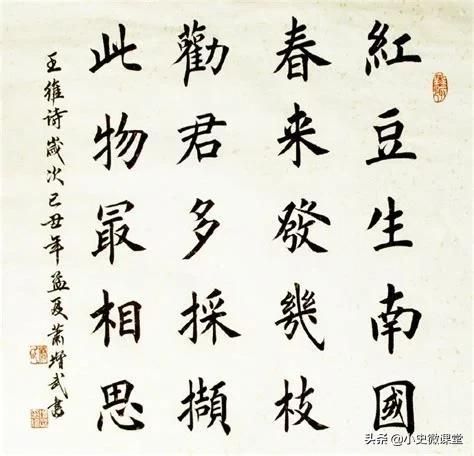 紅豆生南國
春來發幾枝
勸君多採擷
此物最相思
王維诗歲次己丑年孟夏萧增武書
头条 @小史微课堂